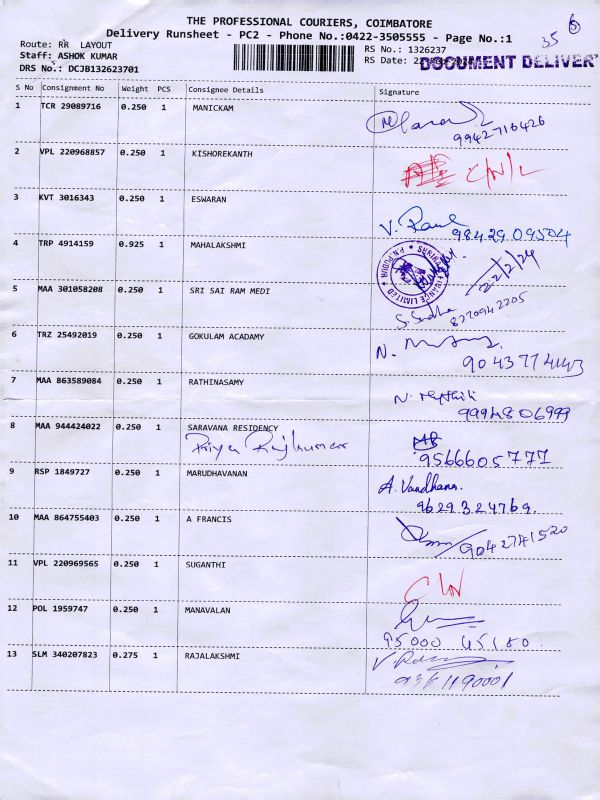 THE PROFESSIONAL COURIERS, COIMBATORE
Delivery Runsheet - PC2 - Phone No.:0422-3505555 - Page No.:1
35 6
Route: RR LAYOUT
Staff: ASHOK KUMAR
DRS No.: DCJB132623701
RS No.: 1326237
RS Date:
DOCUMENT DELIVER
S No Consignment No Weight PCS Consignee Details Signature
1 TCR 29089716 0.250 1 MANICKAM
9942716426
2 VPL 220968857 0.250 1 KISHOREKANTH C/N/L
3 KVT 3016343 0.250 1 ESWARAN
98429 09504
4 TRP 4914159 0.925 1 MAHALAKSHMI
22/2/24
5 MAA 301058208 0.250 1 SRI SAI RAM MEDI
S. Sudha 8270942205
6 TRZ 25492019 0.250 1 GOKULAM ACADAMY
N.
7 MAA 863589084 0.250 1 RATHINASAMY
N.
99948 06999
8 MAA 944424022 0.250 1 SARAVANA RESIDENCY
Priya Rajkumar
9566605777
9 RSP 1849727 0.250 1 MARUDHAVANAN
A. Vandhana.
9629324769.
10 MAA 864755403 0.250 1 A FRANCIS
9042741520
11 VPL 220969565 0.250 1 SUGANTHI
12 POL 1959747 0.250 1 MANAVALAN
95000 45180.
13 SLM 340207823 0.275 1 RAJALAKSHMI